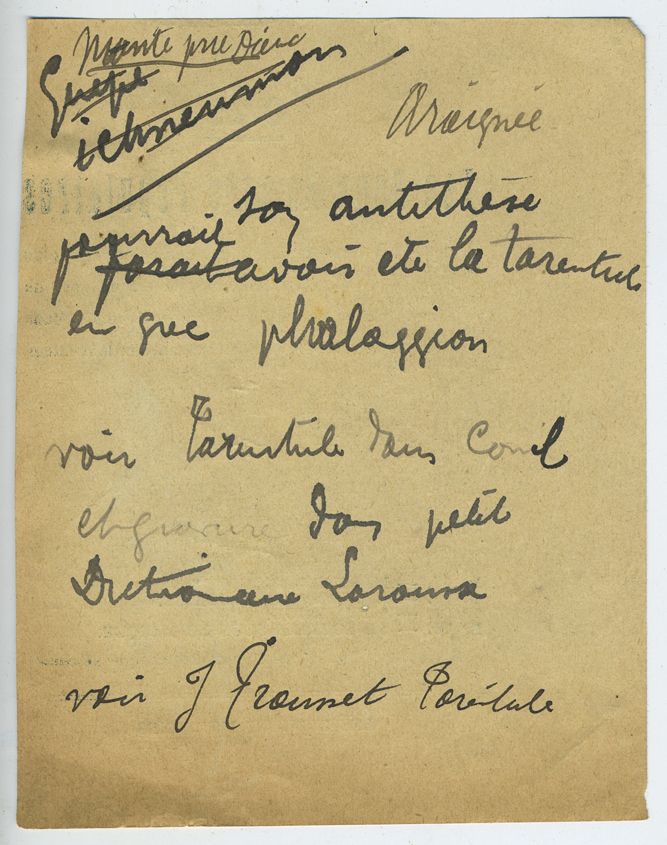 Mante prie Dieu
Guêpe
ichneumon
Araignée
son antithèse
pourrait
ferait avoir été la tarentule
en grec phalaggion
voir Tarentule dans
et gravure dans petit
Dictionnaire Larousse
voir J Trousset Tarentule